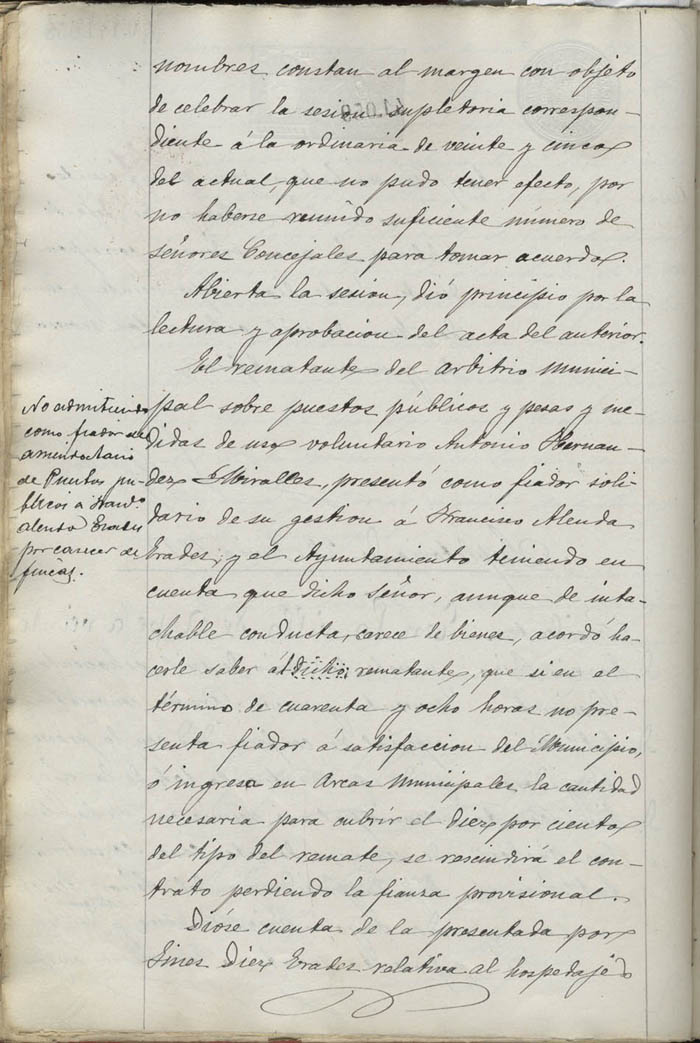 nombres constan al margen con objeto
de celebrar la sesion supletoria correspon-
diente á la ordinaria de veinte y cinco
del actual, que no pudo tener efecto, por
no haberse reunido suficiente número de
señores Concejales para tomar acuerdo.
Abierta la sesion, dió principio por la
lectura y aprobacion del acta del anterior.
El rematante del arbitrio munici-
pal sobre puestos públicos y pesas y me-
didas de uso voluntario Antonio Hernan-
dez Miralles, presentó como fiador soli-
dario de su gestion á Francisco Alenda
Erades, y el Ayuntamiento teniendo en
cuenta que dicho Señor, aunque de inta-
chable conducta, carece de bienes, acordó ha-
cerle saber ál dicho rematante, que si en el
término de cuarenta y ocho horas no pre-
senta fiador á satisfaccion del Municipio,
ó ingresa en Arcas municipales la cantidad
necesaria para cubrir el diez por ciento
del tipo del remate, se rescindirá el con-
trato perdiendo la fianza provisional.
Dióse cuenta de la presentada por
Gines Diez Erades relativa al hospedaje
No admitiendo
como fiador del
arrendatario
de Puestos pú-
blicos a Franco.
Alenda Erades
por carecer de
fincas.